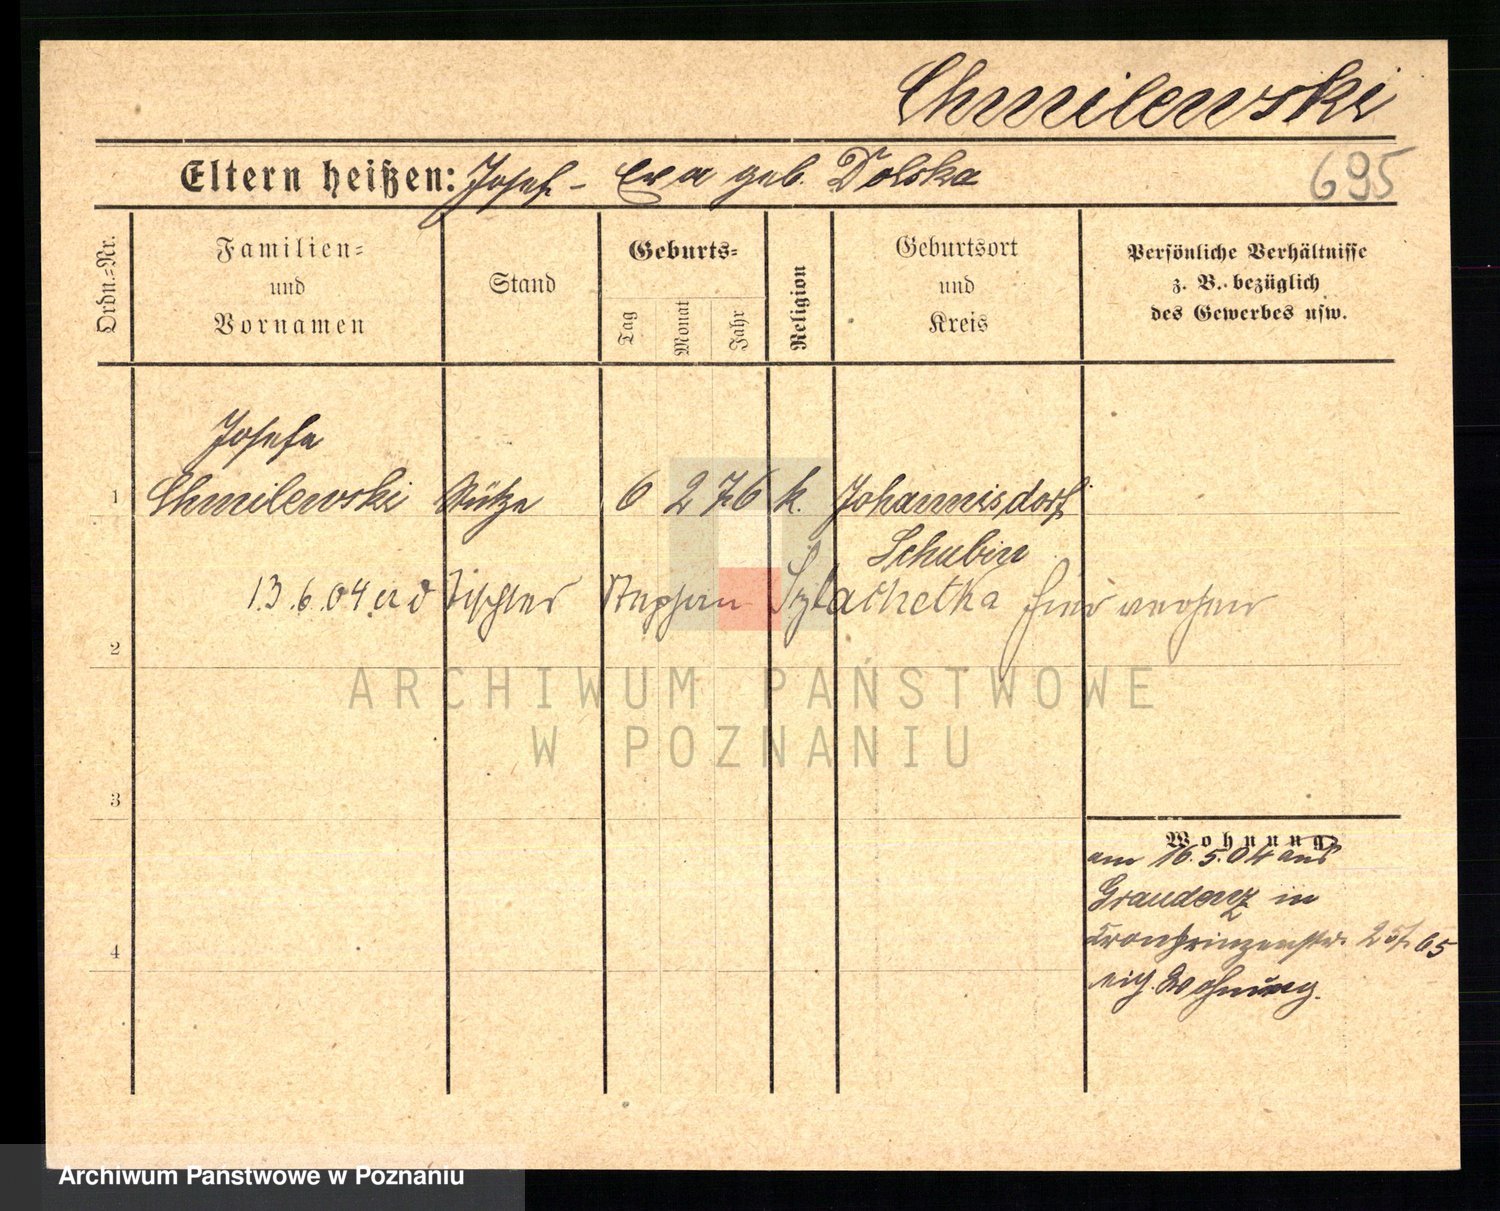 Chmilewski
Eltern heißen: Josef - Eva geb. Dolska
695
Ordn.=Nr.
Familien=
und
Vornamen
Stand
Geburts=
Tag
Monat
Jahr
Religion
Geburtsort
und
Kreis
Persönliche Verhältnisse
z. B. bezüglich
des Gewerbes usw.
Josefa
1 Chmilewski Stütze 6 2 76 k. Johannisdorf
Schubin
13.6.04 Tischler Stephan Szlachetka
2
ARCHIWUM PAŃSTWOWE
W POZNANIU
3
Wohnung
am 16.5.04 aus
Graudenz in
Kronprinzenstr. 65
4
eig. Wohnung.
Archiwum Państwowe w Poznaniu